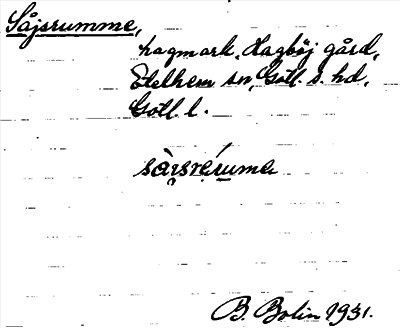 Såjsrumme,
hagmark, Hagböj gård,
Etelhem sn, Gotl. s. hd,
Gotl. l.
B. Bolin 1931.